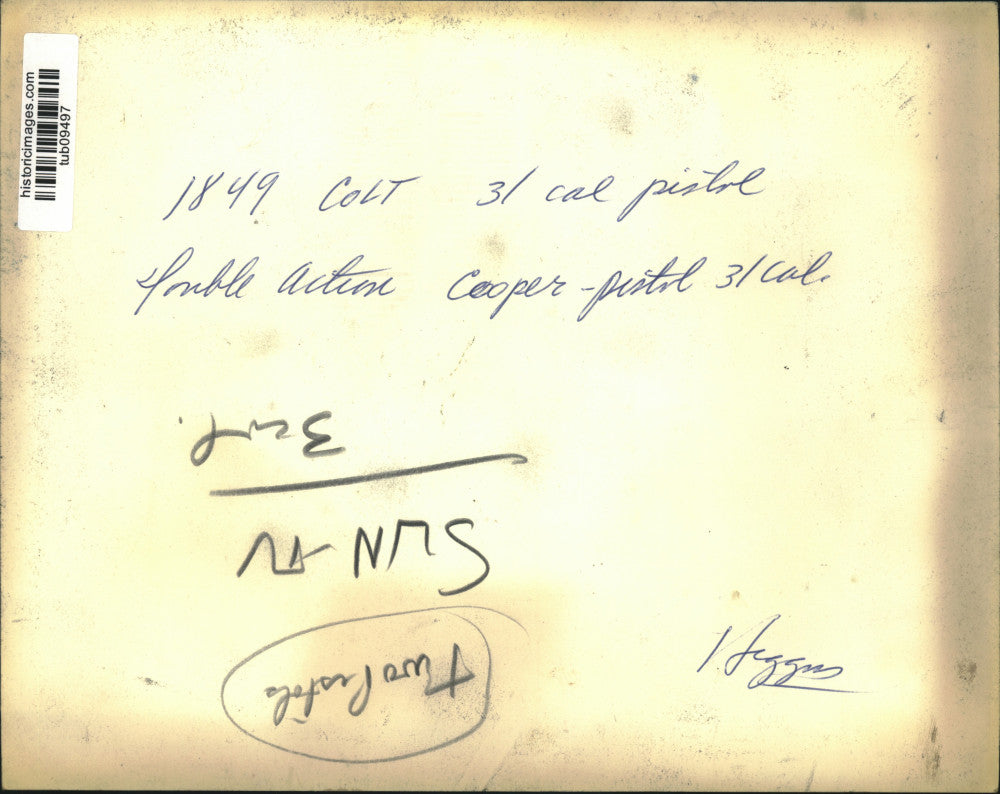 historicimages.com
tub09497
1849 COLT 31 cal pistol
Double Action Cooper - pistol 31 cal.
3 col.
SUN
two Pistols
Higgins